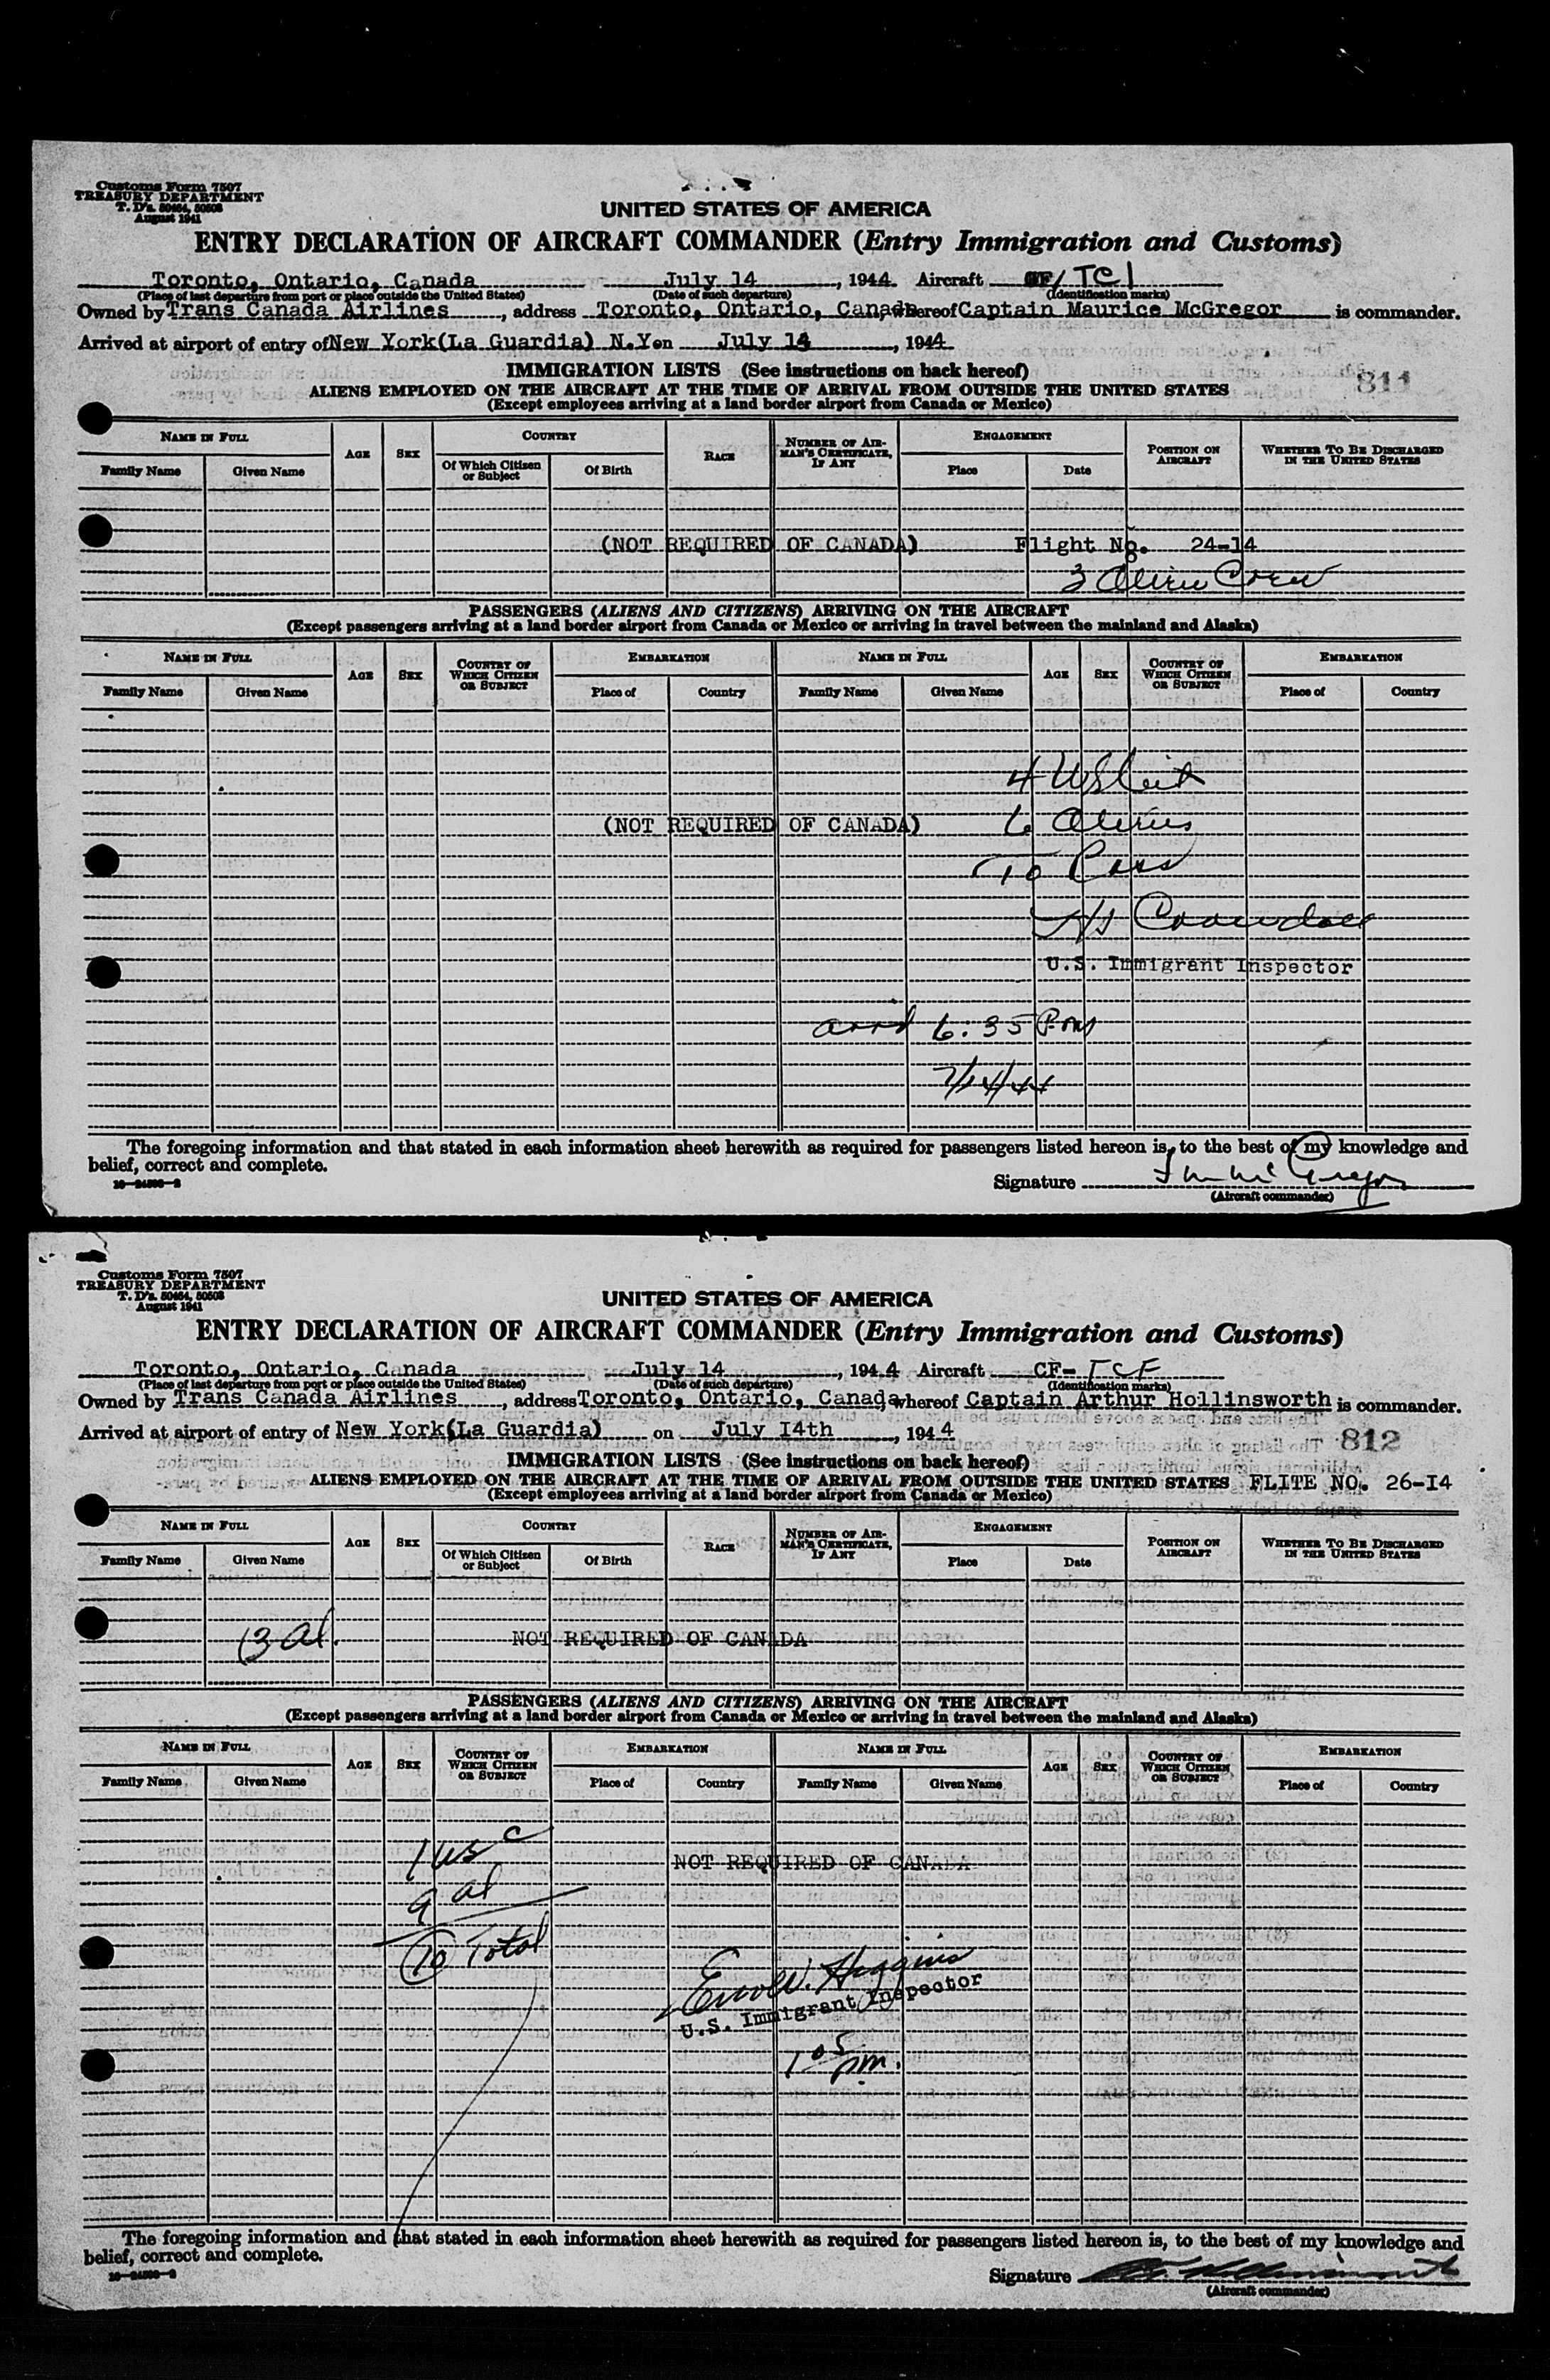 Customs Form 7507
TREASURY DEPARTMENT
T. D's. 50464, 50503
August 1941
UNITED STATES OF AMERICA
ENTRY DECLARATION OF AIRCRAFT COMMANDER (Entry Immigration and Customs)
Toronto, Ontario, Canada July 14, 1944 Aircraft CF/TCI
(Place of last departure from port or place outside the United States) (Date of such departure) (Identification marks)
Owned by Trans Canada Airlines, address Toronto, Ontario, Canada whereof Captain Maurice McGregor is commander.
Arrived at airport of entry of New York(La Guardia) N.Y on July 14, 1944
IMMIGRATION LISTS (See instructions on back hereof)
811
ALIENS EMPLOYED ON THE AIRCRAFT AT THE TIME OF ARRIVAL FROM OUTSIDE THE UNITED STATES
(Except employees arriving at a land border airport from Canada or Mexico)
NAME IN FULL AGE SEX COUNTRY RACE NUMBER OF AIRMAN'S CERTIFICATE, IF ANY ENGAGEMENT POSITION ON AIRCRAFT WHETHER TO BE DISCHARGED IN THE UNITED STATES
Family Name Given Name Of Which Citizen or Subject Of Birth Place Date
(NOT REQUIRED OF CANADA) Flight No. 24-14
3 Alien Crew
PASSENGERS (ALIENS AND CITIZENS) ARRIVING ON THE AIRCRAFT
(Except passengers arriving at a land border airport from Canada or Mexico or arriving in travel between the mainland and Alaska)
NAME IN FULL AGE SEX COUNTRY OF WHICH CITIZEN OR SUBJECT EMBARKATION NAME IN FULL AGE SEX COUNTRY OF WHICH CITIZEN OR SUBJECT EMBARKATION
Family Name Given Name Place of Country Family Name Given Name Place of Country
4 US Cit
(NOT REQUIRED OF CANADA) 6 Aliens
10 Pass
U.S. Immigrant Inspector
arrd 6:35 Pm
7/14/44
The foregoing information and that stated in each information sheet herewith as required for passengers listed hereon is, to the best of my knowledge and
belief, correct and complete.
16-24590-2
Signature McGregor
(Aircraft commander)
Customs Form 7507
TREASURY DEPARTMENT
T. D's. 50464, 50503
August 1941
UNITED STATES OF AMERICA
ENTRY DECLARATION OF AIRCRAFT COMMANDER (Entry Immigration and Customs)
Toronto, Ontario, Canada July 14, 1944 Aircraft CF-TCF
(Place of last departure from port or place outside the United States) (Date of such departure) (Identification marks)
Owned by Trans Canada Airlines, address Toronto, Ontario, Canada whereof Captain Arthur Hollinsworth is commander.
Arrived at airport of entry of New York(La Guardia) on July I4th, 1944
812
IMMIGRATION LISTS (See instructions on back hereof)
ALIENS EMPLOYED ON THE AIRCRAFT AT THE TIME OF ARRIVAL FROM OUTSIDE THE UNITED STATES FLITE NO. 26-I4
(Except employees arriving at a land border airport from Canada or Mexico)
NAME IN FULL AGE SEX COUNTRY RACE NUMBER OF AIRMAN'S CERTIFICATE, IF ANY ENGAGEMENT POSITION ON AIRCRAFT WHETHER TO BE DISCHARGED IN THE UNITED STATES
Family Name Given Name Of Which Citizen or Subject Of Birth Place Date
(3 al. NOT REQUIRED OF CANADA
PASSENGERS (ALIENS AND CITIZENS) ARRIVING ON THE AIRCRAFT
(Except passengers arriving at a land border airport from Canada or Mexico or arriving in travel between the mainland and Alaska)
NAME IN FULL AGE SEX COUNTRY OF WHICH CITIZEN OR SUBJECT EMBARKATION NAME IN FULL AGE SEX COUNTRY OF WHICH CITIZEN OR SUBJECT EMBARKATION
Family Name Given Name Place of Country Family Name Given Name Place of Country
1 USC
NOT REQUIRED OF CANADA
9 al
10 Total
W. Higgins
U.S. Immigrant Inspector
1 05 pm.
The foregoing information and that stated in each information sheet herewith as required for passengers listed hereon is, to the best of my knowledge and
belief, correct and complete.
16-24590-2
Signature
(Aircraft commander)